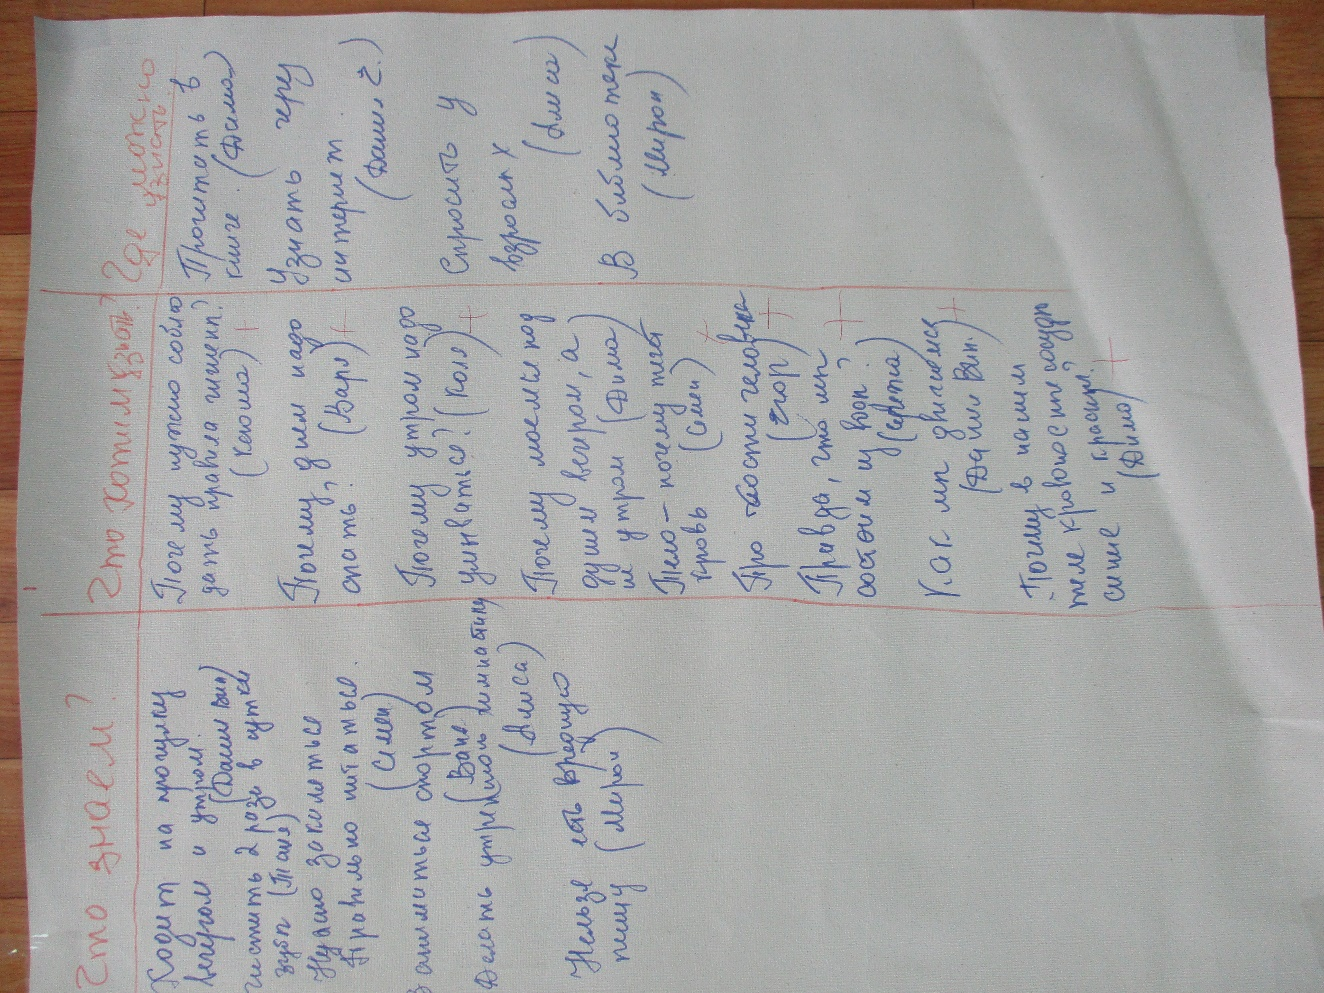 Что знаем?
Ходит на прогулку
вечером и утром.
(Данил Вин)
чистить 2 раза в сутки
зубы (Таня)
Нужно закаляться
Правильно питаться.
(Семен)
Заниматься спортом
(Ваня)
Делать утреннюю гимнастику
(Алиса)
Нельзя есть вредную
пищу (Мирон)
Что хотим узнать?
Почему нужно соблю
дать правила гигиены?
(Ксюша) +
Почему, днем надо
спать? (Варя) +
Почему утром надо
умываться? (Коля) +
Почему моемся под
душем вечером, а
не утром (Дима)
Тело – почему течет
кровь (Семен) +
Про кости человека
(Егор) +
Правда, что мы
состоим из воды?
+
Как мы двигаемся
(Данил Вин.) +
Почему в нашем
теле кровоносные сосуды
синие и красные.
(Дима) +
Где можно
узнать
Прочитать в
книге. (Дима)
Узнать через
интернет.
(Данил Č.)
Спросить у
взрослых
(Алиса)
В библиотеке
(Мирон)